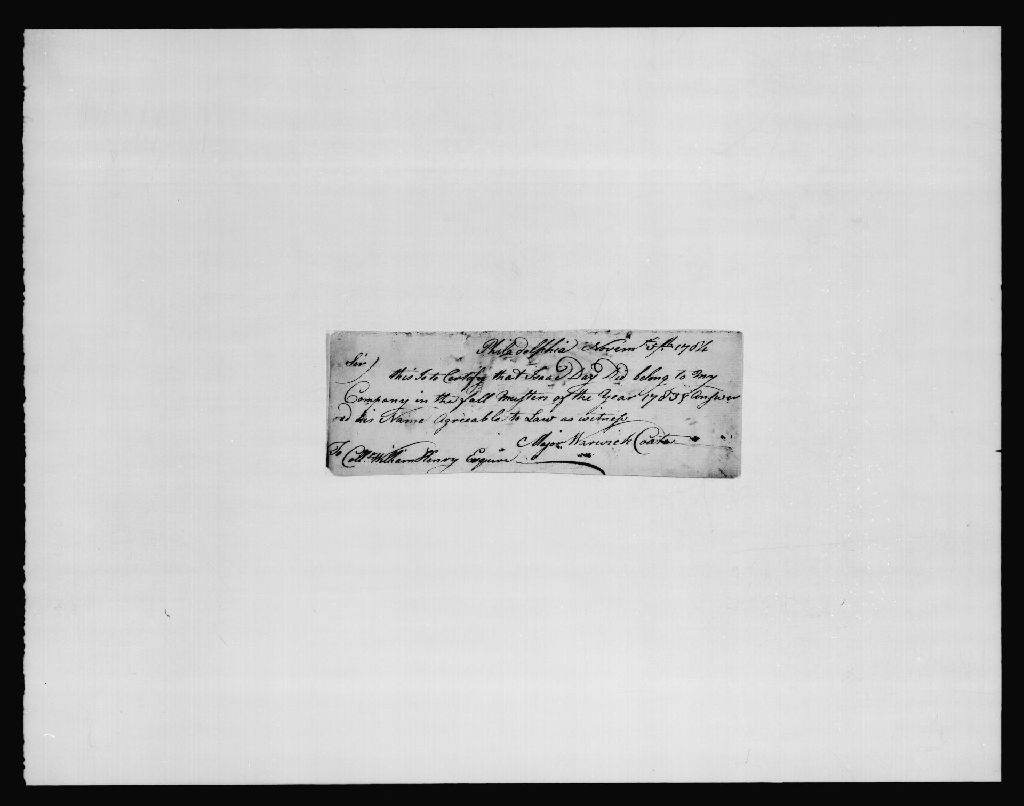 Philadelphia Novem.r 5th 1784
Sir)
this Is to Certify that Isaac Day Did belong to my
Company in the fall Musters of the Year 1783 & answer
ed his Name Agreeable to Law as witness
Major Warwick Coats
To Coll.o William Henry Esquire